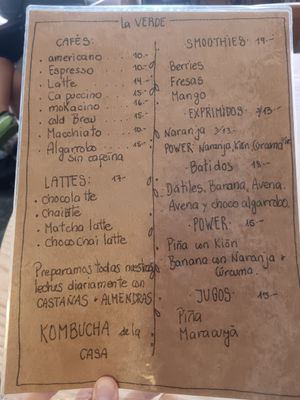 La VERDE
CAFÉS:
. americano 10.-
. Espresso 10.-
. Latte 14.-
. Ca puccino 15.-
. mokacino 16.-
. cold Brew 15.-
. Macchiato 10.-
. Algarrobo 15.-
Sin cafeína
LATTES: 17.-
. chocolatte
. Chai latte
. Matcha latte
. choco chai latte
Preparamos todas nuestras
leches diariamente con
CASTAÑAS + ALMENDRAS
KOMBUCHA de la
CASA
SMOOTHIES 19.-
Berries
Fresas
Mango
. EXPRIMIDOS
Naranja
POWER: Naranja, Kión, Cúrcuma
. Batidos
. Dátiles, Banana, Avena.
Avena y choco algarrobo.
. POWER. 16.-
. Piña con Kión
. Banana con Naranja +
Cúrcuma.
. JUGOS 15.-
Piña
Maracuyá